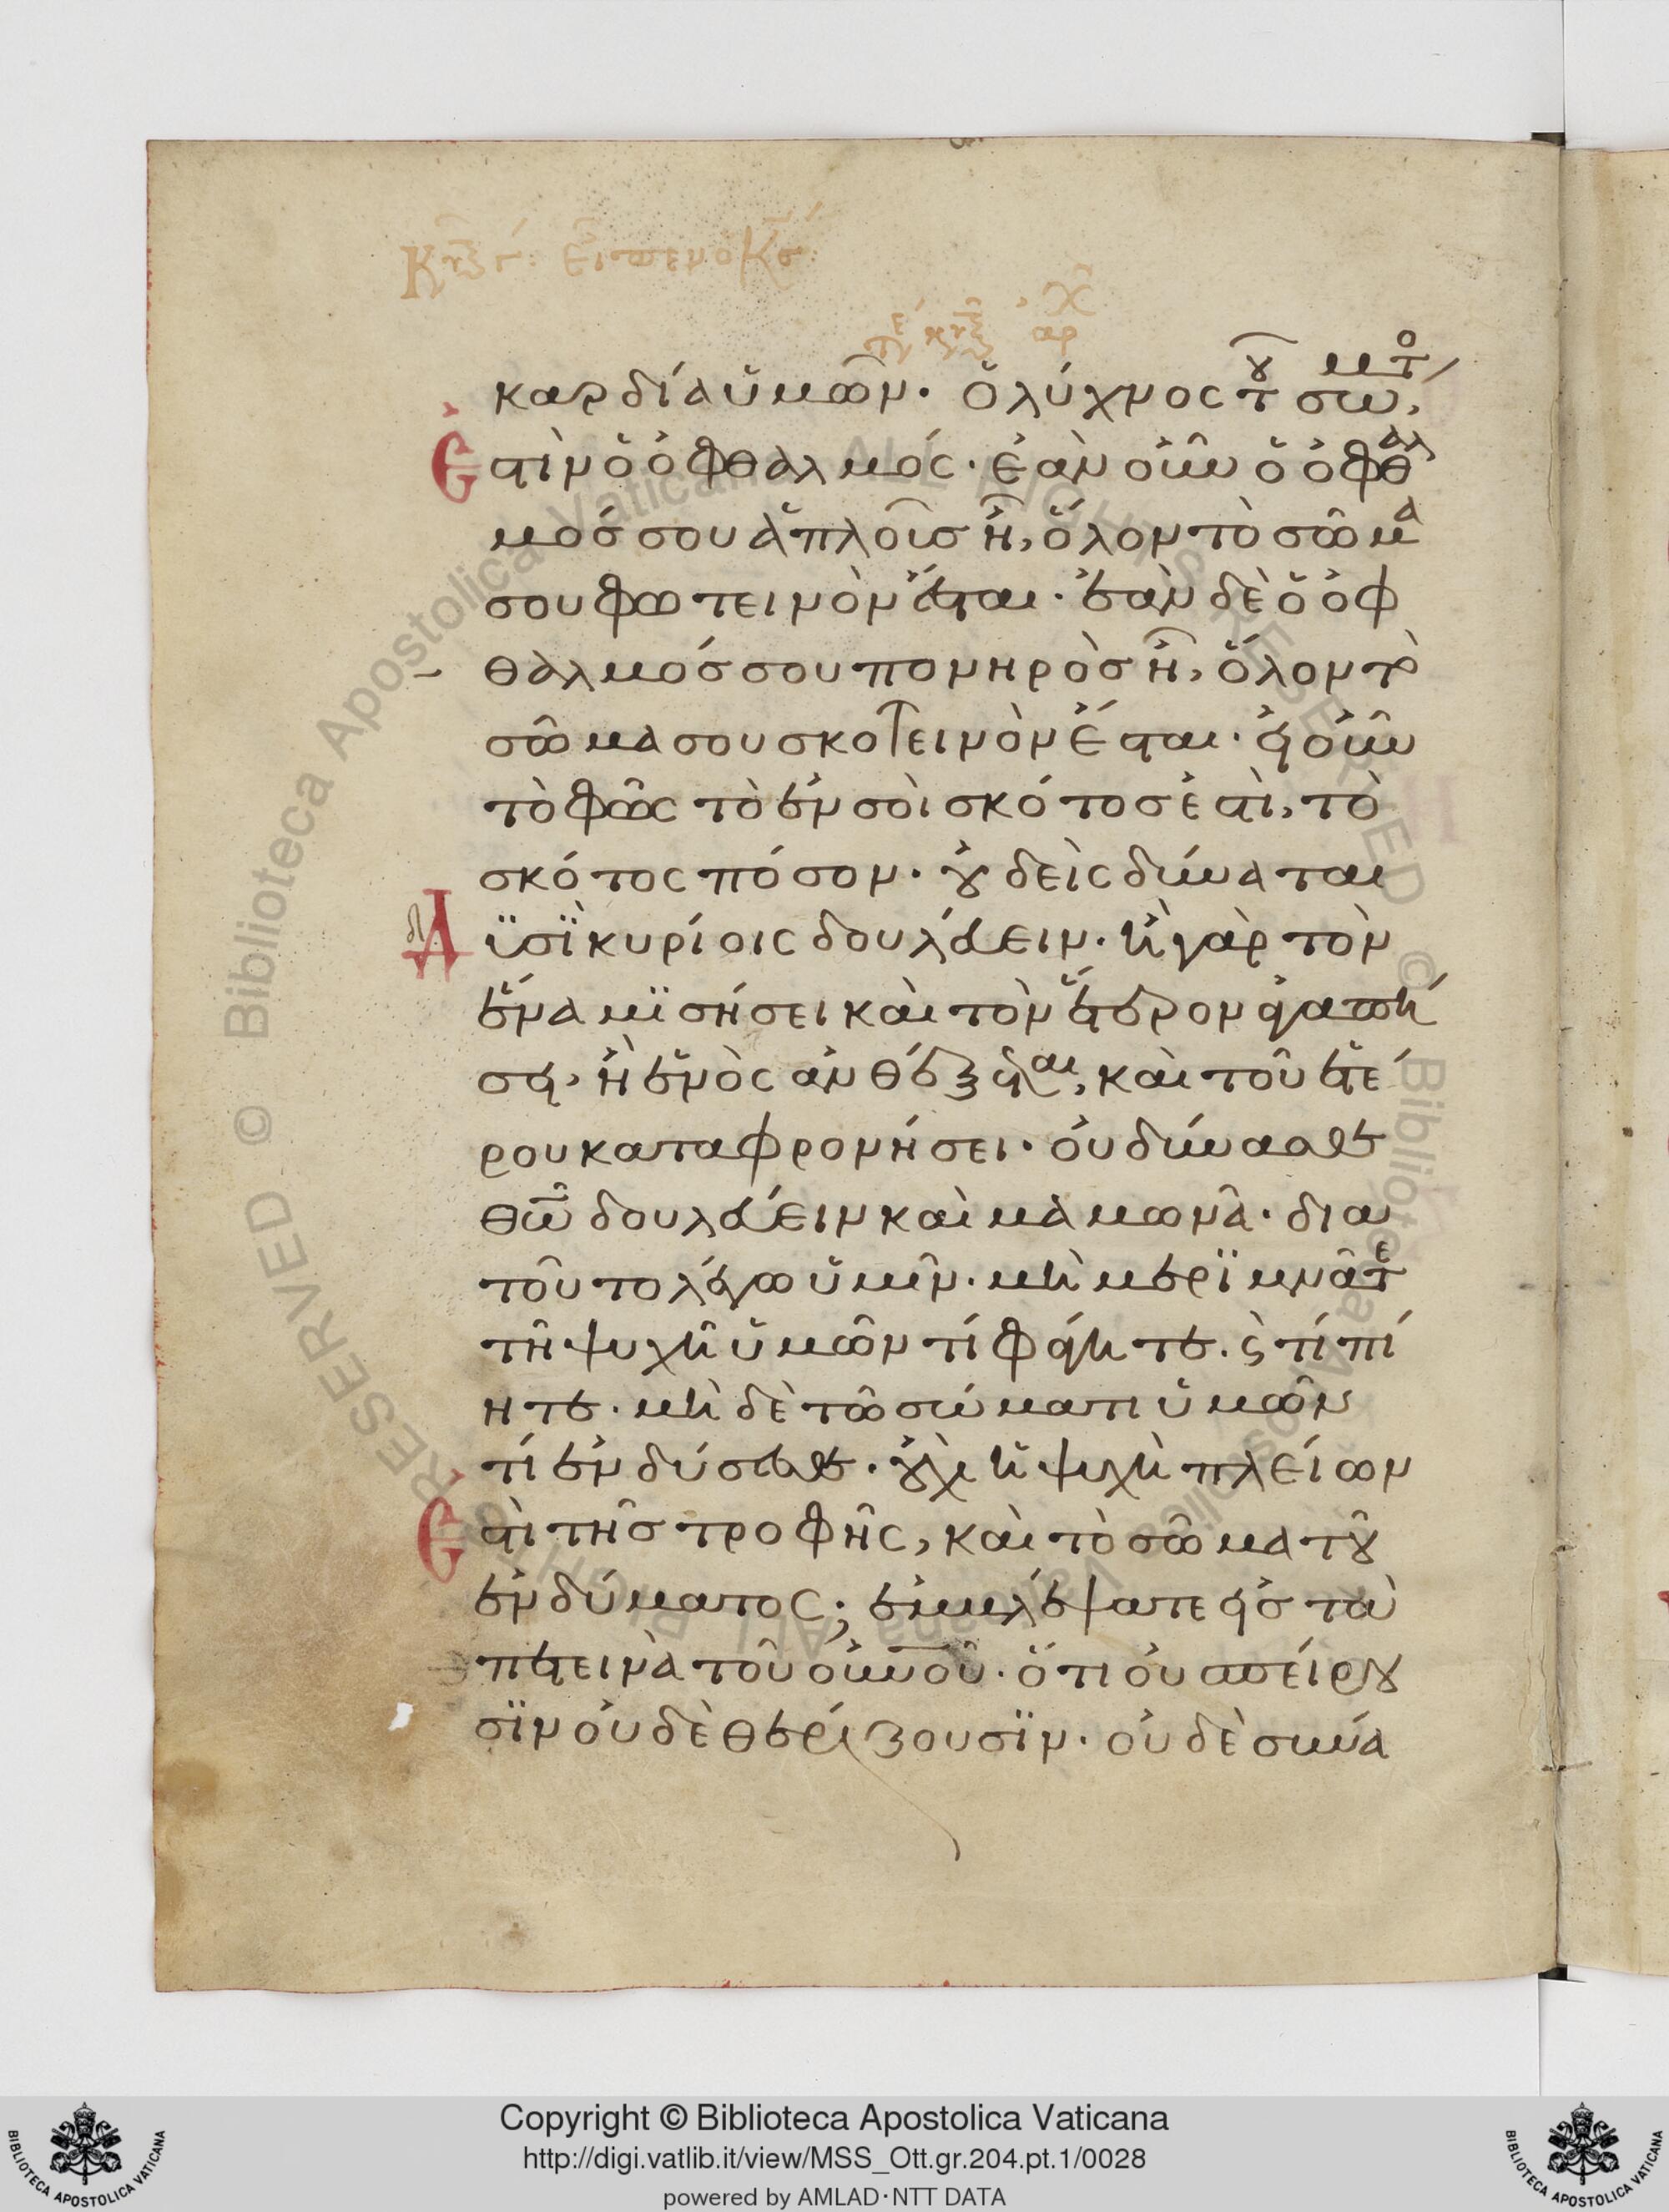 καρδία ὑμῶν· ὁ λύχνος τοῦ σώματος,
ἐστὶν ὁ ὀφθαλμός· ἐὰν οὖν ὁ ὀφθαλ
μός σου ἁπλοῦσ ῇ, ὅλον τὸ σῶμα
σου φωτεινὸν ἔσται· ἐὰν δὲ ὁ ὀφ
θαλμός σου πονηρὸσ ῇ, ὅλον τὸ
σῶμα σου σκοτεινὸν ἔσται· εἰ οὖν
τὸ φῶς τὸ ἐν σοὶ σκότοσ ἐστὶ, τὸ
σκότος πόσον· οὐδεὶς δύναται
δ
Δυσὶ κυρίοις δουλεύειν· ἢ γὰρ τὸν
ἕνα μισήσει καὶ τὸν ἕτερον ἀγαπή
σει, ἢ ἑνὸς ἀνθέξεται, καὶ τοῦ ἑτέ
ρου καταφρονήσει· οὐ δύνασθε
θῶ δουλεύειν καὶ μαμωνᾶ· δια
τοῦτο λέγω ὑμῖν· μὴ μεριμνᾶτε
τῇ ψυχῇ ὑμῶν τί φάγητε. ϛ τί πί
ητε· μὴ δὲ τῶ σώματι ὑμῶν
τί ἐνδύσησθε· οὐχὶ ἡ ψυχὴ πλείων
ἐστὶ τῆσ τροφῆς, καὶ τὸ σῶμα τοῦ
ἐνδύματος; ἐμβλέψατε εἰσ τὰ
πετεινὰ τοῦ οὐνοῦ· ὅτι οὐ σπείρου
σϊν οὐδὲ θερίζουσϊν· οὐδὲ συνά
Copyright © Biblioteca Apostolica Vaticana
http://digi.vatlib.it/view/MSS_Ott.gr.204.pt.1/0028
powered by AMLAD·NTT DATA
BIBLIOTECA APOSTOLICA VATICANA
BIBLIOTECA APOSTOLICA VATICANA